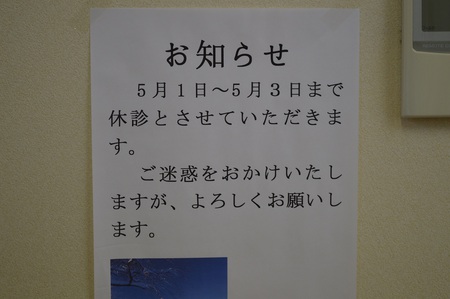 お知らせ
５月１日～５月３日まで
休診とさせていただきま
す。
ご迷惑をおかけいたし
ますが、よろしくお願いし
ます。